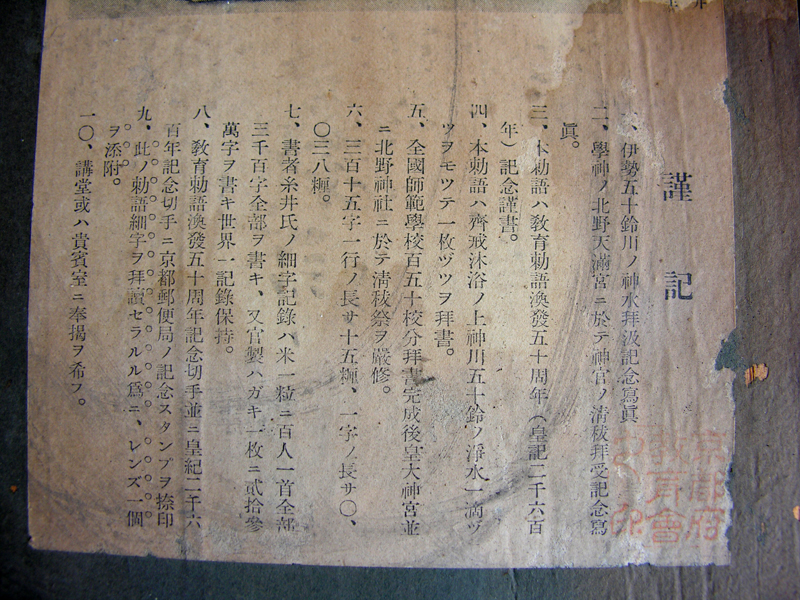 謹記
一、伊勢五十鈴川ノ神水拜汲記念寫眞
二、學神ノ北野天滿宮ニ於テ神官ノ清秡拜受記念寫
眞。
三、本勅語ハ敎育勅語渙發五十周年（皇記二千六百
年）記念謹書。
四、本勅語ハ齊戒沐浴ノ上神川五十鈴ノ淨水一滴ヅ
ツヲモツテ一枚ヅツヲ拜書。
五、全國師範學校百五十校分拜書完成後皇大神宮並
ニ北野神社ニ於テ淸秡祭ヲ嚴修。
六、三百十五字一行ノ長サ十五糎、一字ノ長サ〇、
〇三八糎。
七、書者糸井氏ノ細字記錄ハ米一粒ニ百人一首全部
三千百字全部ヲ書キ、又官製ハガキ一枚ニ貳拾參
萬字ヲ書キ世界一記錄保持。
八、敎育勅語渙發五十周年記念切手並ニ皇紀二千六
百年記念切手ニ京都郵便局ノ記念スタンプヲ捺印
九、此ノ勅語細字ヲ拜讀セラルル爲ニ、レンズ一個
ヲ添附。
一〇、講堂或ハ貴賓室ニ奉揭ヲ希フ。
京都府
育會